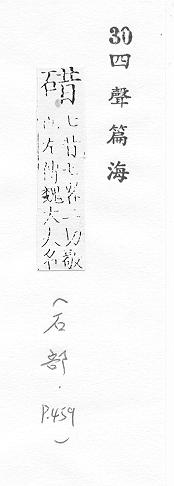 30 四聲篇海
碏
七昔七客二切敬
也左傳魏大夫名
(石部.P.459)